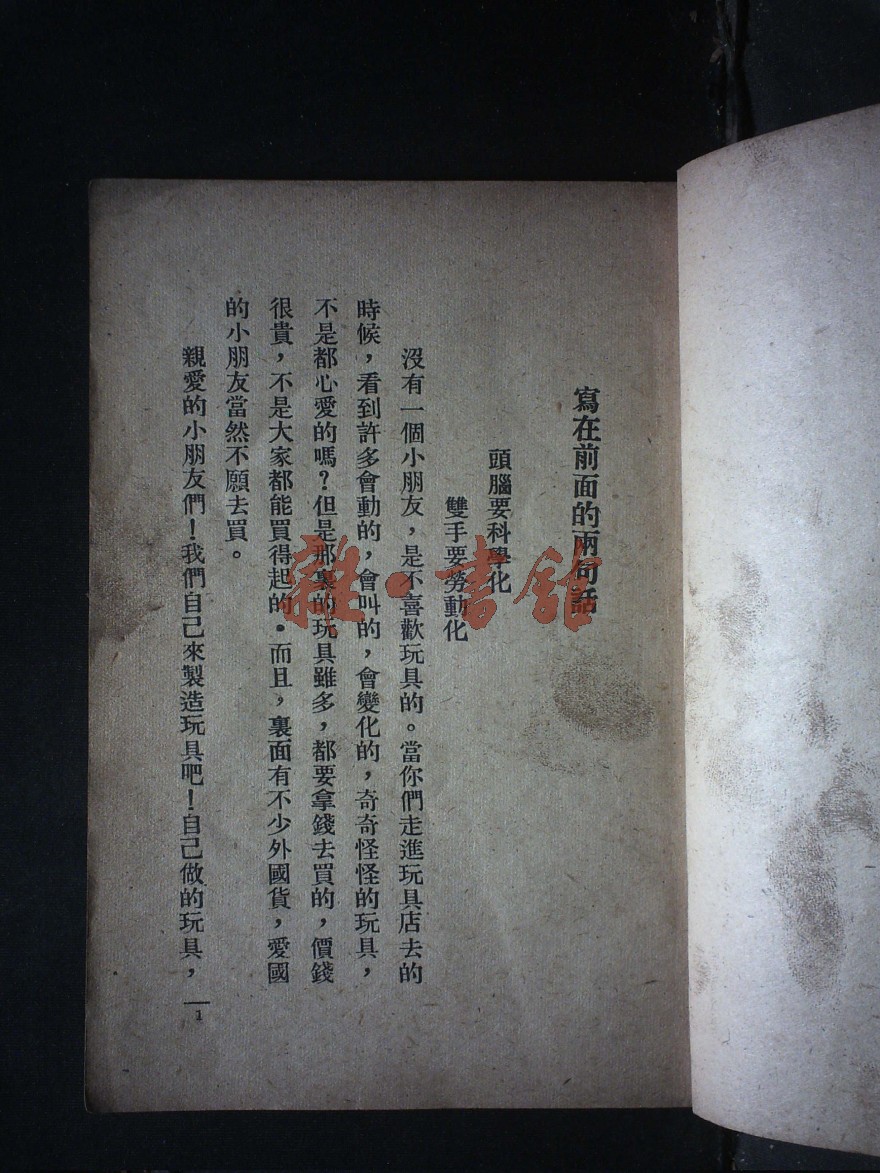 寫在前面的兩句話
頭腦要科學化
雙手要勞動化
沒有一個小朋友，是不喜歡玩具的。當你們走進玩具店去的
時候，看到許多會動的，會叫的，會變化的，奇奇怪怪的玩具，
不是都心愛的嗎？但是那裏的玩具雖多，都要拿錢去買的，價錢
很貴，不是大家都能買得起的。而且，裏面有不少外國貨，愛國
的小朋友當然不願去買。
親愛的小朋友們！我們自己來製造玩具吧！自己做的玩具，
1
雜·書館